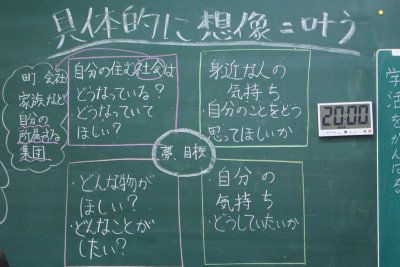 具体的に想像=叶う
町 会社
家族など
自分の
所属する
集団
自分の住む社会は
どうなっている?
どうなっていて
ほしい?
身近な人の
気持ち
自分のことをどう
思ってほしいか
20:00
夢、目標
・どんな物が
ほしい?
・どんなことが
したい?
・自分の
気持ち
・どうしていたいか
学
活
をがんばる